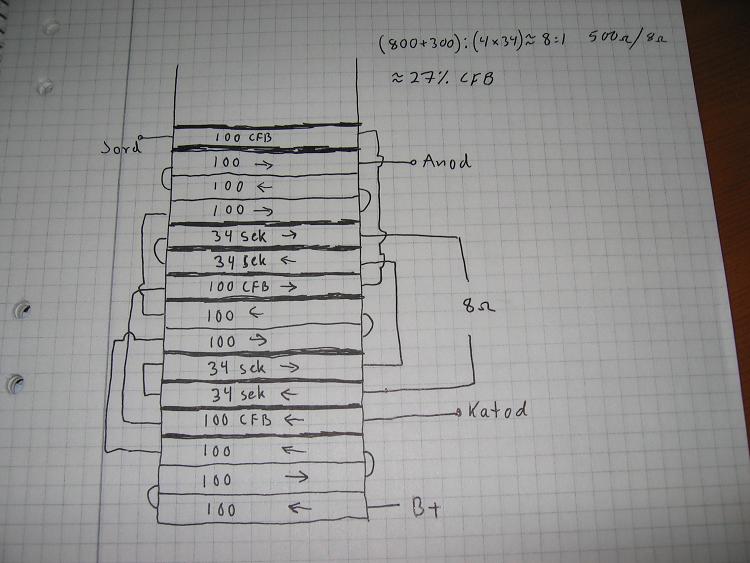 (800+300):(4×34)≈8:1 500Ω/8Ω
≈27% CFB
Jord 100 CFB
100 → Anod
100 ←
100 →
34 sek →
34 sek ←
100 CFB →
8Ω
100 ←
100 →
34 sek →
34 sek ←
100 CFB ← Katod
100 ←
100 →
100 ← B+